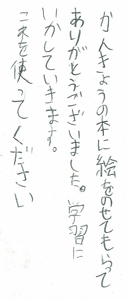 かんきょうの本に絵をのせてもらって
ありがとうございました。学習に
いかしていきます。
これを使ってください